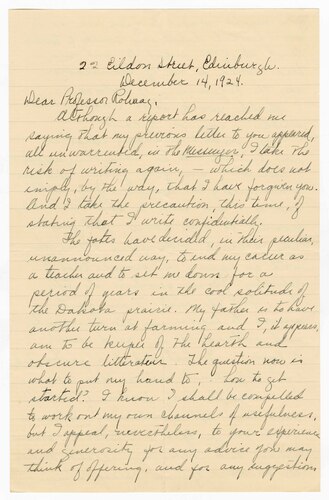 22 Eildon Street, Edinburgh.
December 14, 1924.
Dear Professor Rolvaag,
Although a report has reached me
saying that my previous letter to you appeared,
all unwarranted, in the Messenger, I take the
risk of writing again, – which does not
imply, by the way, that I have forgiven you.
And I take the precaution, this time, of
stating that I write confidentially.
The fates have decided, in their peculiar,
unannounced way, to end my career as
a teacher and to set me down for a
period of years in the cool solitude of
the Dakota prairie. My father is to have
another turn at farming and I, it appears,
am to be keeper of the hearth and
obscure litterateur. The question now is
what to put my hand to, – how to get
started? I know I shall be compelled
to work out my own channels of usefulness,
but I appeal, nevertheless, to your experience
and generosity for any advice you may
think of offering, and for any suggestions